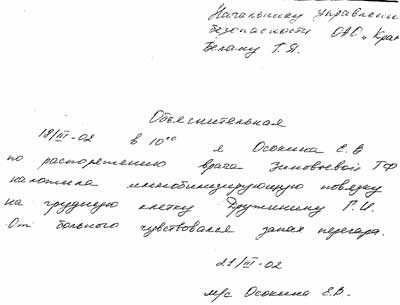 Начальнику управлени
безопасности ОАО „Крас
Белану Г.Я.
Объяснительная
18/III-02 в 10⁰⁰ я Осокина Е.В
по распоряжению врача Зиновьевой Т.Ф
наложила иммобилизирующую повязку
на грудную клетку Дружинину Г.И.
От больного чувствовался запах перегара.
21/III-02
м/с Осокина Е.В.